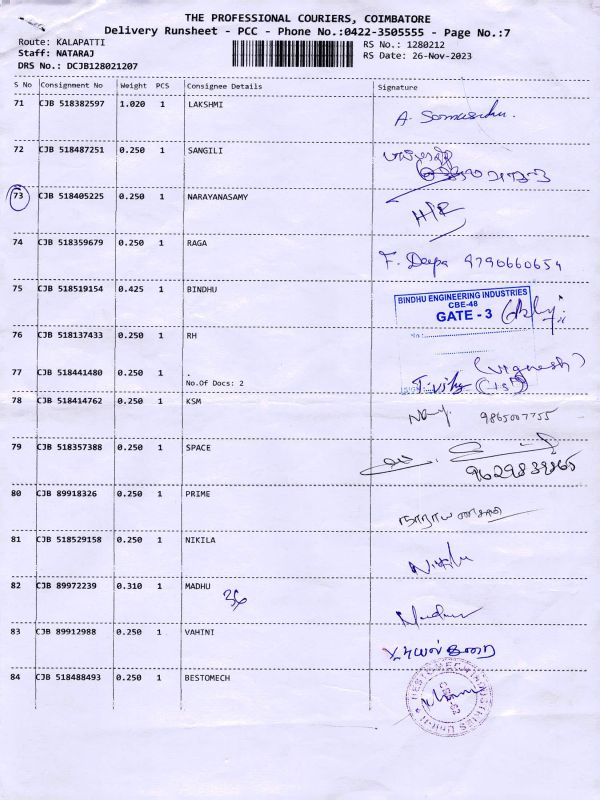 THE PROFESSIONAL COURIERS, COIMBATORE
Delivery Runsheet - PCC - Phone No.:0422-3505555 - Page No.:7
Route: KALAPATTI
RS No.: 1280212
Staff: NATARAJ
RS Date: 26-Nov-2023
DRS No.: DCJB128021207
S No Consignment No Weight PCS Consignee Details Signature
71 CJB 518382597 1.020 1 LAKSHMI
72 CJB 518487251 0.250 1 SANGILI
73 CJB 518405225 0.250 1 NARAYANASAMY
74 CJB 518359679 0.250 1 RAGA F. Deepa 9790660654
75 CJB 518519154 0.425 1 BINDHU
BINDHU ENGINEERING INDUSTRIES
CBE-48
GATE - 3
76 CJB 518137433 0.250 1 RH
(Vignesh)
77 CJB 518441480 0.250 1 .
No.Of Docs: 2
78 CJB 518414762 0.250 1 KSM 9865007755
79 CJB 518357388 0.250 1 SPACE
9629839865
80 CJB 89918326 0.250 1 PRIME
81 CJB 518529158 0.250 1 NIKILA
82 CJB 89972239 0.310 1 MADHU
83 CJB 89912988 0.250 1 VAHINI
84 CJB 518488493 0.250 1 BESTOMECH